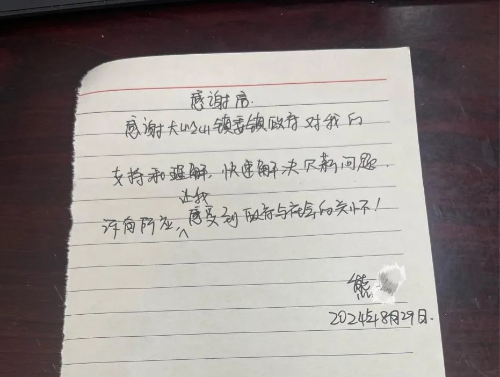 感谢信.
感谢大山镇委镇政府对我的
支持和理解,快速解决欠薪问题.
让我
感受到政府与社会的关怀!
熊
2024年8月29日.